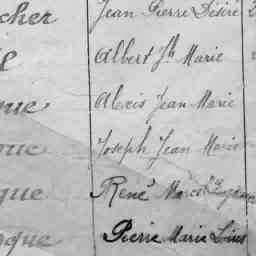 cher Jean Pierre Désiré 2
Albert Jh Marie
que Alexis Jean Marie
que Joseph Jean Marie
que René Marcel Eugène
que Pierre Marie Louis